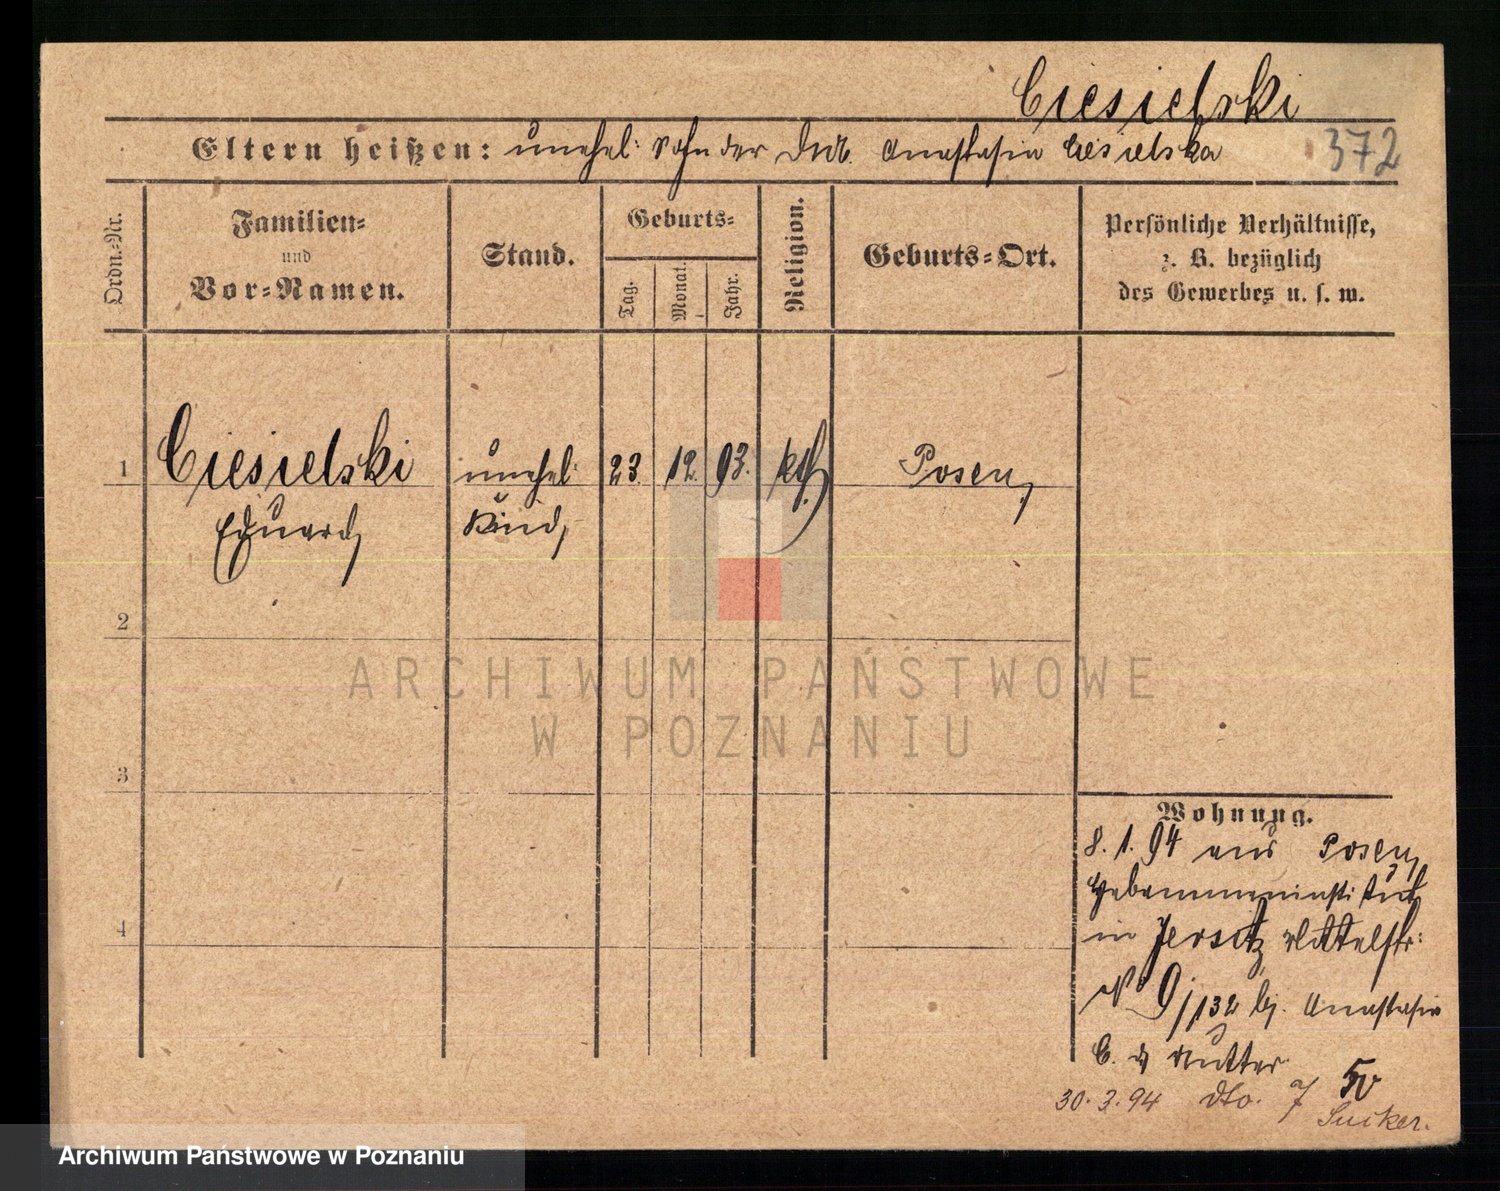 Ciesielski
Eltern heißen: unehel: Sohn der Anastasia Ciesielska
372
Ordn.=Nr.
Familien=
und
Vor=Namen.
Stand.
Geburts=
Tag.
Monat.
Jahr.
Religion.
Geburts=Ort.
Persönliche Verhältnisse,
z. B. bezüglich
des Gewerbes u. s. w.
1 Ciesielski unehel: 23. 12. 93. kth. Posen,
Eduard, Kind,
2
3
4
Wohnung.
8. 1. 94 aus Posen,
Hebammeninstitut
in Jersitz Mittelstr:
No 9/132 bj. Anastasia
C. d Mutter
30. 3. 94 dto. 7 50
ARCHIWUM PAŃSTWOWE
W POZNANIU
Archiwum Państwowe w Poznaniu